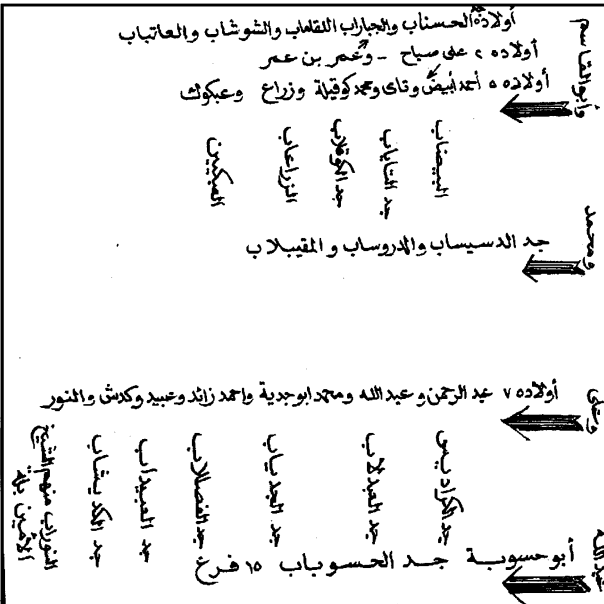 وأبوالقاسم
أولاده الحسناب والجباراب اللقاماب والشوشاب والعاتباب
أولاده ٢ على صباح - وخمر بن عمر
أولاده ٥ أحمد أبيض وتاى ومحمد كوقيلة وزراع وعبكوك
البيضاب
جد التاياب
جد الكوقلاب
الزراعاب
العبكيين
ومحمد
جد الدسيساب والدروساب والمقيبلاب
وعلى
أولاده ٧ عبد الرحمن وعبد الله ومحمد ابوجدية واحمد زائد وعبيد وكدش والنور
جد الكراديس
جد العبدلاب
جد الجدياب
جد الفضلاب
جد العبيداب
جد الكديشاب
النوراب منهم الشيخ
الأمين بلة
عبد الله
أبو حسوبة جد الحسوباب ١٥ فرع